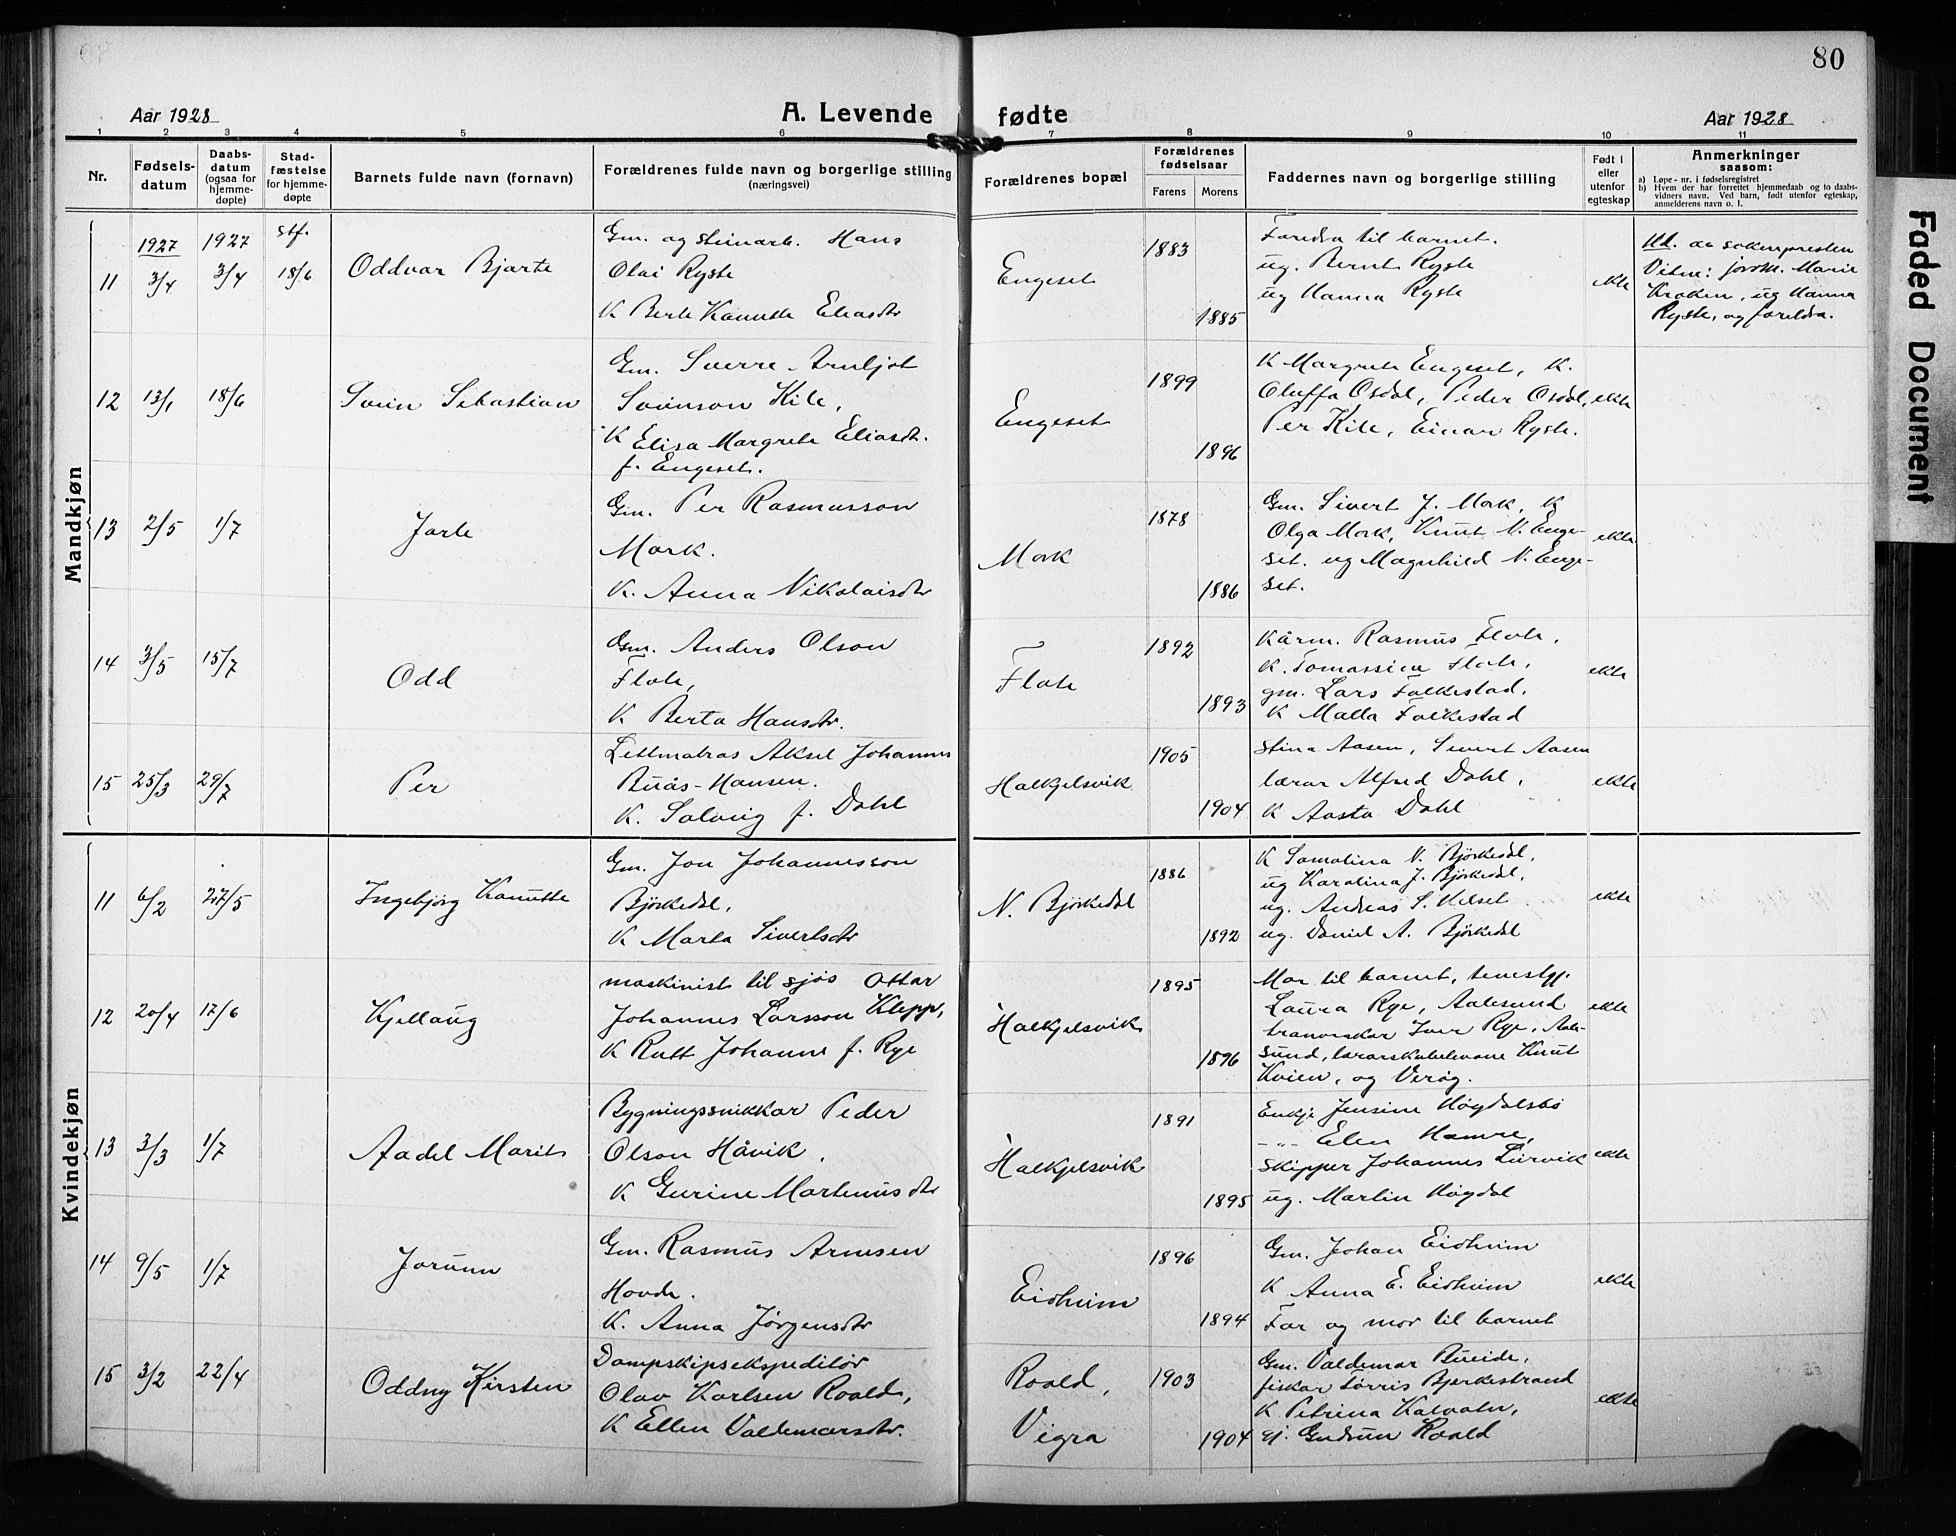 80
Aar 1928
A. Levende
fødte
Aar 1928
1 2 3 4 5 6 7 8 9 10 11
Nr.
Fødsels-
datum
Daabs-
datum
(ogsaa for
hjemme-
døpte)
Stad-
fæstelse
for hjemme-
døpte
Barnets fulde navn (fornavn)
Forældrenes fulde navn og borgerlige stilling
(næringsvei)
Forældrenes bopæl
Forældrenes
fødselsaar
Farens Morens
Faddernes navn og borgerlige stilling
Født i
eller
utenfor
egteskap
Anmerkninger
saasom:
a) Løpe-nr. i fødselsregistret
b) Hvem der har forrettet hjemmedaab og to daabs-
vidners navn. Ved barn, født utenfor egteskap,
anmelderens navn o. l.
Mandkjøn
11
1927
3/4
1927
3/4
stf.
18/6
Oddvar Bjarte
Gm. og steinarb. Hans
Olai Ryste
K Berte Kanutte Eliasdtr
Engeset
1883
1885
Foreldra til barnet.
ug. Bernt Ryste
ug Hanna Ryste
ekte
Hd. av sokenpresten
Vitne: jordm. Marie
Kroken, ug Hanna
Ryste, og foreldra.
12
13/1
18/6
Svein Sebastian
Gm. Sverre Arnljot
Sveinson Kile,
K Elisa Margrete Eliasdt.
f. Engeset.
Engeset
1899
1896
K Margrete Engeset, K.
Oluffa Osdal, Peder Osdal,
Per Kile, Einar Ryste.
ekte
13
2/5
1/7
Jarle
Gm. Per Rasmusson
Mork.
K. Anna Nikolaisdtr
Mork
1878
1886
Gm. Sivert J. Mork, K
Olga Mork, Knut N. Enge-
set. ug Magnhild N. Enge-
set.
ekte
14
3/5
15/7
Odd
Gm. Anders Olson
Flote,
K Berta Hansdtr.
Flote
1892
1893
Kårm. Rasmus Flote,
K. Tomassine Flote,
gm. Lars Folkestad,
K Malla Folkestad
ekte
15
25/3
29/7
Per
Lettmatros Aksel Johannes
Buås-Hansen.
K. Solveig f. Dahl
Halkjelsvik
1905
1904
Stina Aasen, Sivert Aasen
lærar Alfred Dahl,
K Aasta Dahl
ekte
Kvindekjøn
11
6/2
27/5
Ingebjørg Kanutte
Gm. Jon Johannesson
Bjørkedal,
K Marta Sivertsdtr
N. Bjørkedal
1886
1892
K Samolina N. Bjørkedal,
ug Karolina J. Bjørkedal,
ug. Andreas S. Helset
ug. Daniel A. Bjørkedal
ekte
12
20/4
17/6
Kjellaug
maskinist til sjøs Ottar
Johannes Larsson Klepp,
K Rutt Johanne f. Rye
Halkjelsvik
1895
1896
Mor til barnet, tenestgj.
Laura Rye, Aalesund
tranverkar Iver Rye, Aale-
sund, lærarskuleelevane Knut
Kvien, og Verøg.
ekte
13
3/3
1/7
Aadel Marit
Bygningssnikkar Peder
Olson Håvik,
K Gurine Martinusdtr
Halkjelsvik
1891
1895
Enkje Jensine Høgdalsbø
-"- Elen Hamre,
skipper Johannes Lurvik
ug. Martin Høgdal
ekte
14
9/5
1/7
Jorunn
Gm. Rasmus Arnesen
Hovde.
K. Anna Jørgensdtr
Eidheim
1896
1894
Gm. Johan Eidheim
K Anna E. Eidheim
Far og mor til barnet
ekte
15
3/2
22/4
Oddny Kirsten
Dampskipsekspeditør
Olav Karlsen Roald,
K Ellen Valdemarsdtr.
Roald,
Vigra
1903
1904
Gm. Valdemar Bueide,
fiskar Sørris Bjørkestrand
K Petrina Kalvatn,
gj. Gudrun Roald
ekte
Faded Document